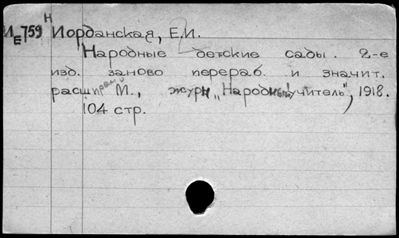 И/Е 759 Н Иорданская, Е.И.
Народные детские сады. 2-е
изд. заново перераб. и значит.
расширен М., журн „Народный учитель“, 1918.
104 стр.